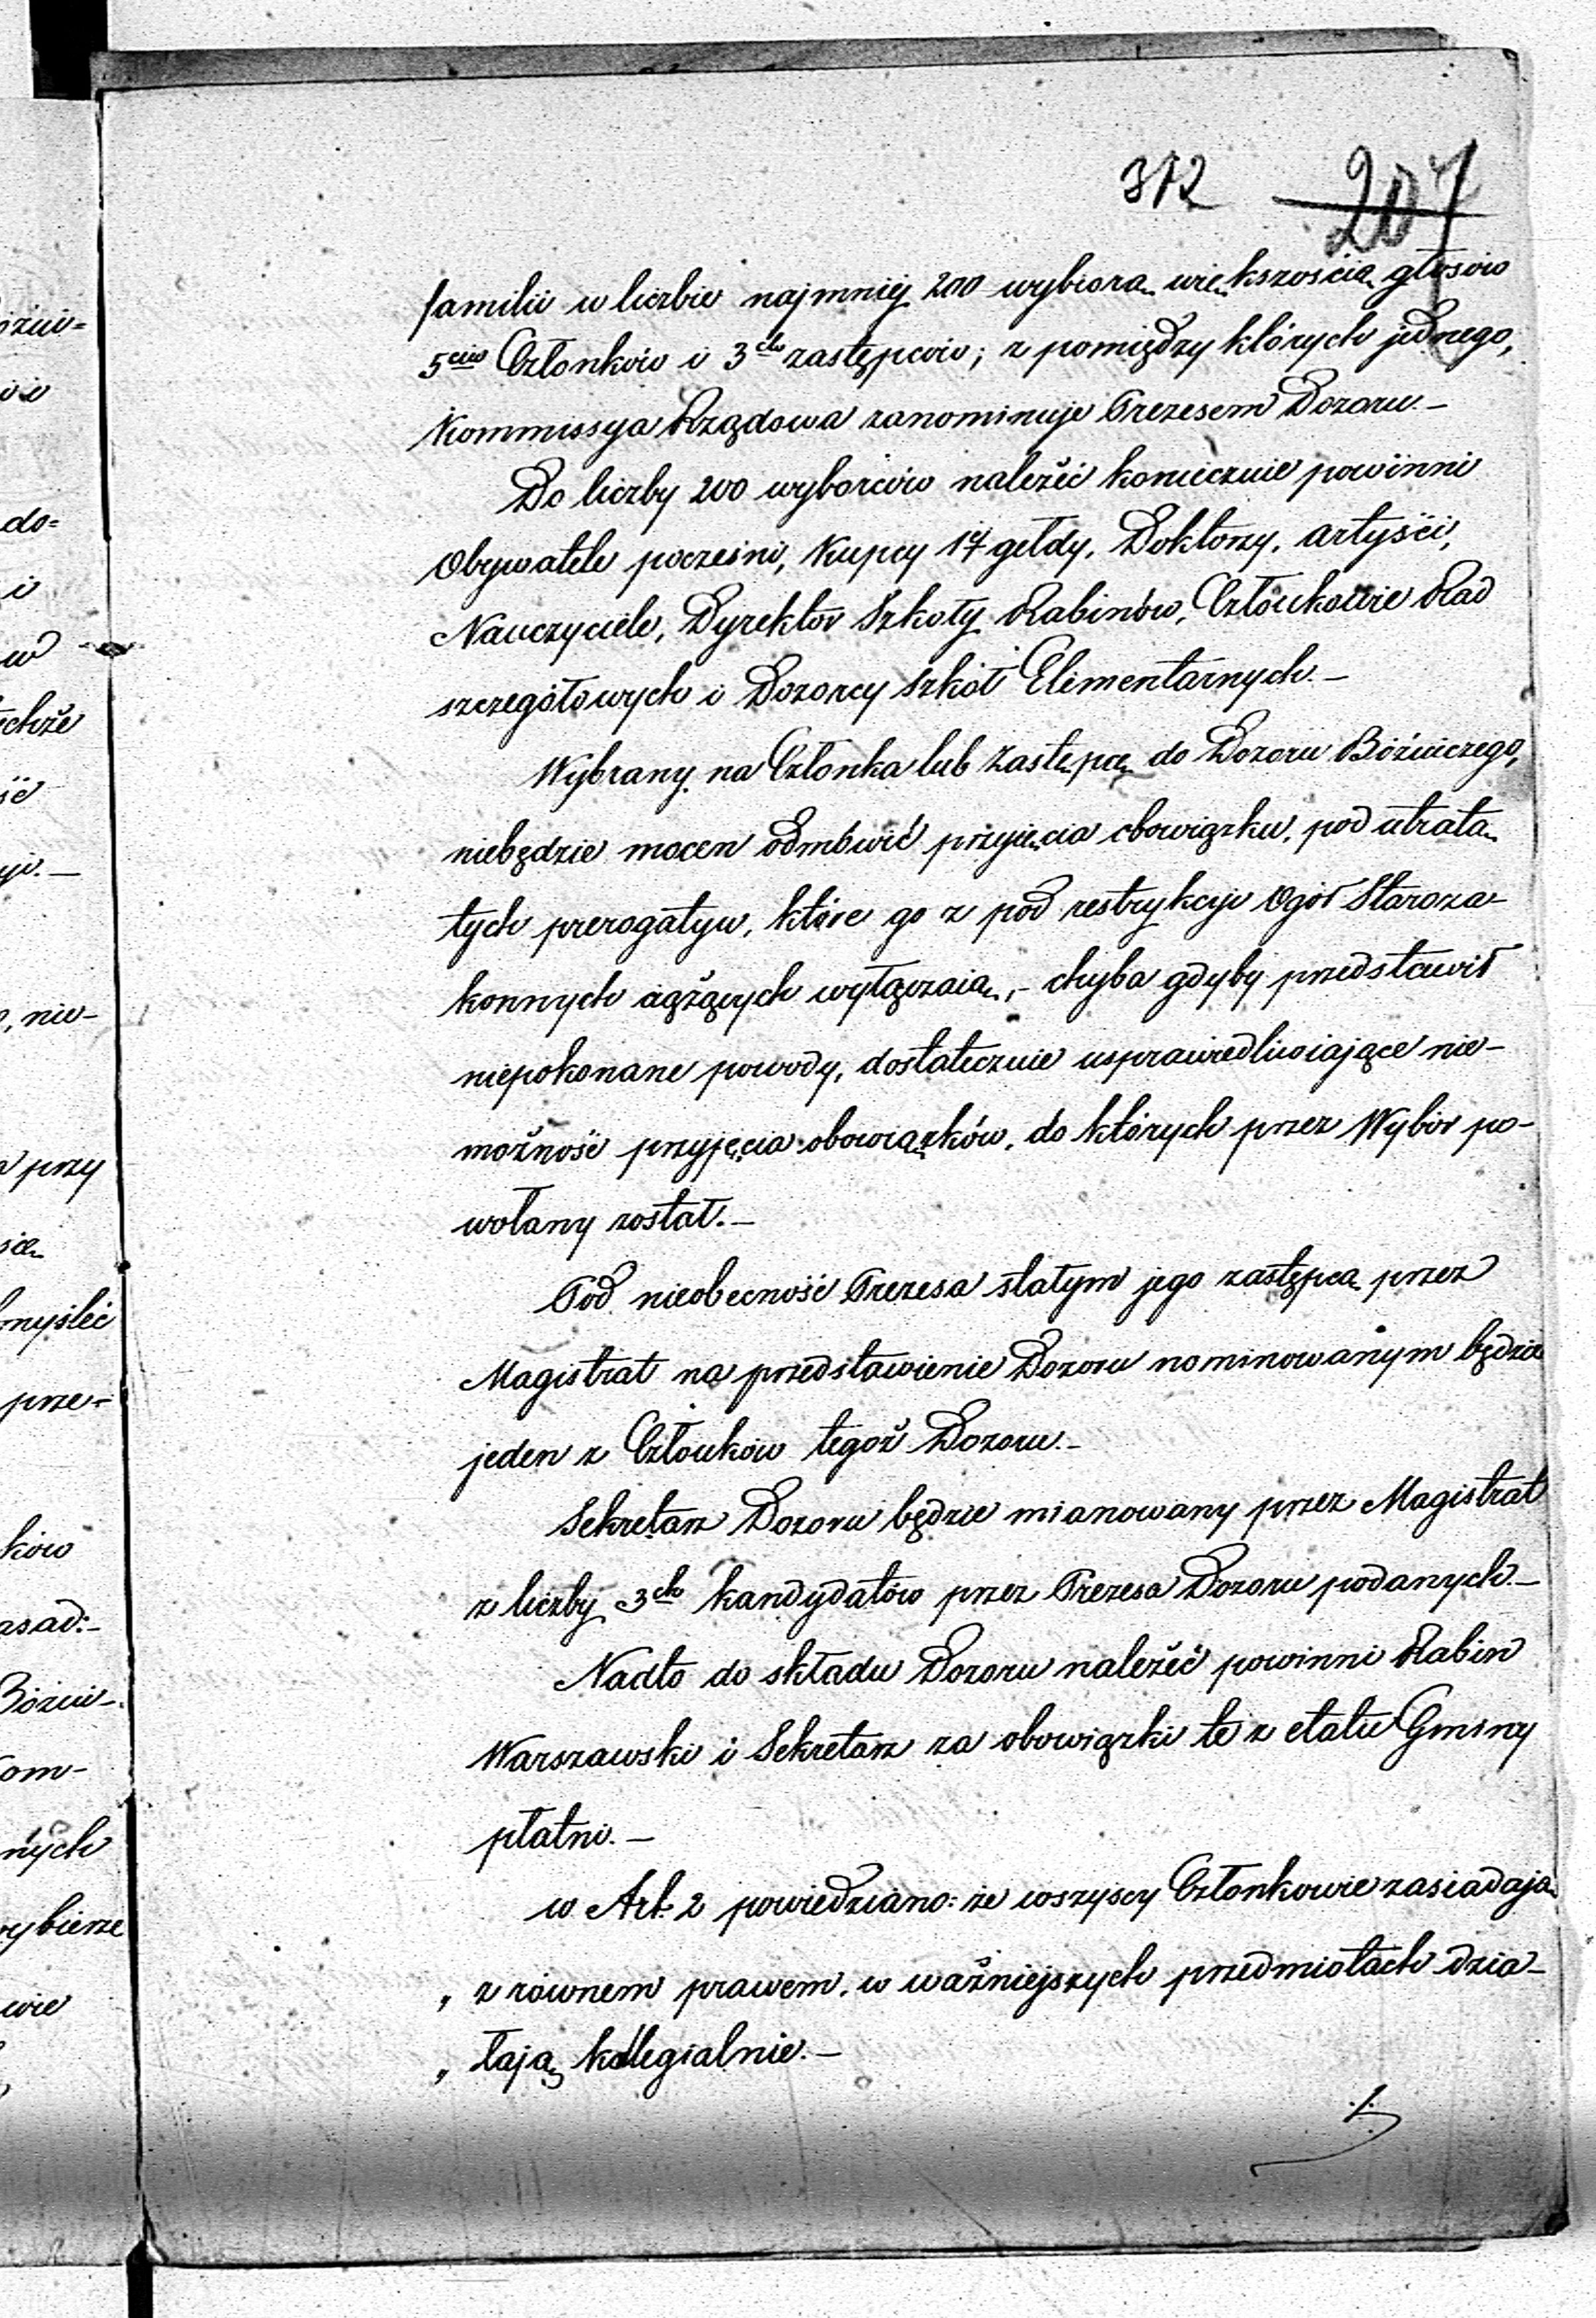 312 207
familii w liczbie najmniéj 200 wybiorą większością głosów
5ciu Członków i 3ch zastępców; z pomiędzy których jednego,
Kommissya Rządowa zanominuje Prezesem Dozoru.–
Do liczby 200 wyborców należéć koniecznie powinni
Obywatele poczesni, Kupcy 1éj gełdy, Doktorzy, artyści,
Nauczyciele, Dyrektor Szkoły Rabinów, Członkowie Rad
szczegółowych i Dozorcy Szkół Elementarnych.–
Wybrany na Członka lub Zastępcę do Dozoru Bóźniczego,
niebędzie mocen odmówić przyięcia obowiązku, pod utratą
tych prerogatyw, które go z pod restrykcyi Ogół Staroza-
konnych ciążących wyłączaią,– chyba gdyby przedstawił
niepokonane powody, dostatecznie usprawiedliwiające nie-
możność przyjęcia obowiązków, do których przez Wybór po-
wołany został.–
Pod nieobecność Prezesa stałym jego zastępcą przez
Magistrat na przedstawienie Dozoru nominowanym będzie
jeden z Członków tegoż Dozoru.–
Sekretarz Dozoru będzie mianowany przez Magistrat
z liczby 3ch kandydatów przez Prezesa Dozoru podanych.–
Nadto do składu Dozoru należéć powinni Rabin
Warszawski i Sekretarz za obowiązki te z etatu Gminy
płatni.–
w Art. 2 powiedziano: że wszyscy Członkowie zasiadają
„ z równem prawem, w ważniejszych przedmiotach dzia-
„ łają kollegialnie.–
./.